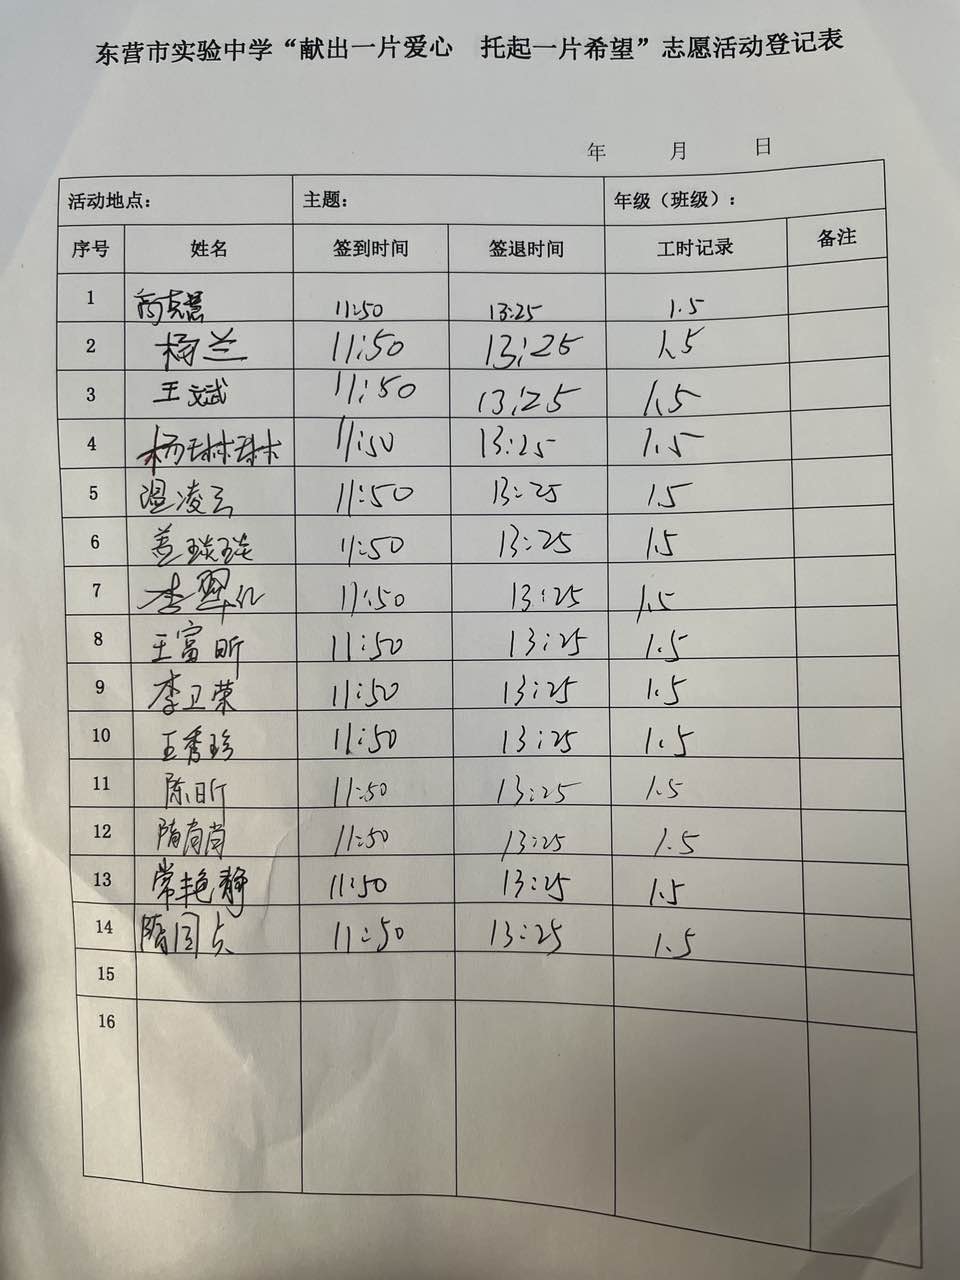 东营市实验中学“献出一片爱心 托起一片希望”志愿活动登记表
年 月 日
活动地点： 主题： 年级（班级）：
序号 姓名 签到时间 签退时间 工时记录 备注
1 11:50 13:25 1.5
2 杨兰 11:50 13:25 1.5
3 王文斌 11:50 13:25 1.5
4 杨琳琳 11:50 13:25 1.5
5 温凌云 11:50 13:25 1.5
6 盖琰琰 11:50 13:25 1.5
7 李翠红 11:50 13:25 1.5
8 王富昕 11:50 13:25 1.5
9 李卫荣 11:50 13:25 1.5
10 王秀珍 11:50 13:25 1.5
11 陈昕 11:50 13:25 1.5
12 隋肖肖 11:50 13:25 1.5
13 常艳静 11:50 13:25 1.5
14 11:50 13:25 1.5
15
16